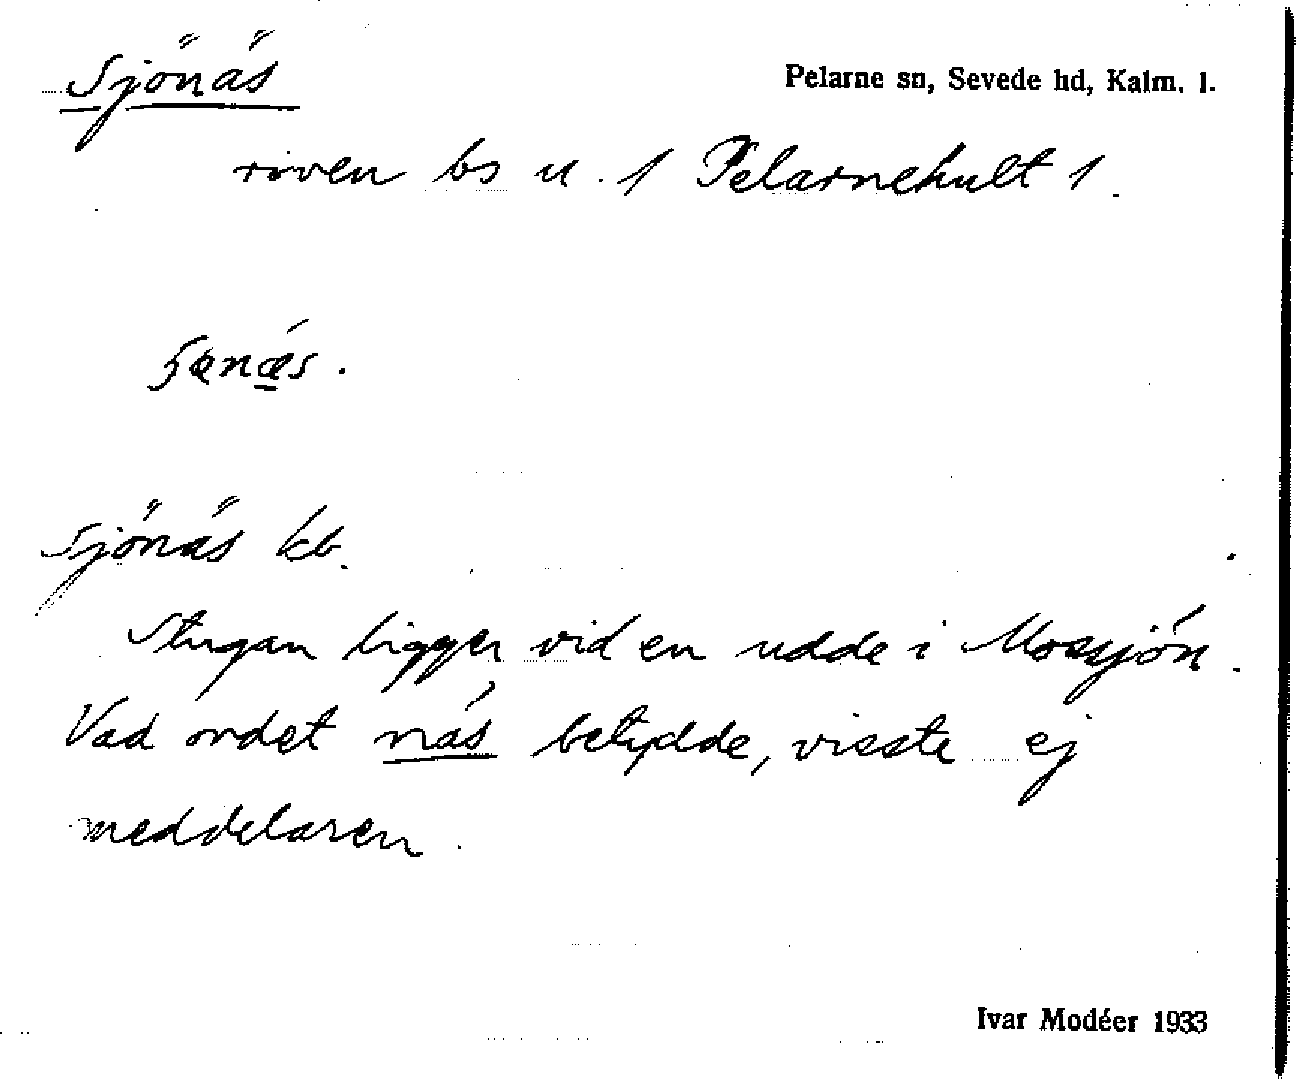 Sjönäs
Pelarne sn, Sevede hd, Kalm. l.
riven bs u. 1 Pelarnehult 1.
Sjönäs kb.
Stugan ligger vid en udde i Mossjön.
Vad ordet näs betydde, visste ej
meddelaren.
Ivar Modéer 1933